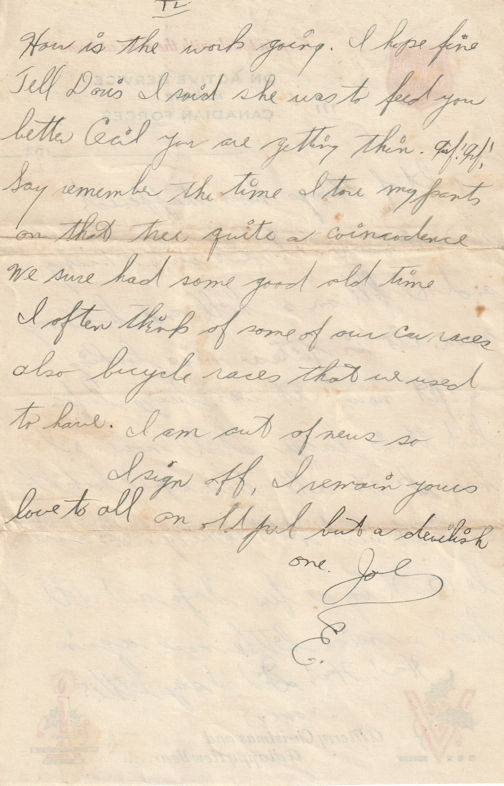 IV
How is the work going. I hope fine
Tell Doris I said she was to feed you
better Cecil you are getting thin.
Say remember the time I tore my pants
on that tree quite a coincodence
We sure had some good old time
I often think of some of our car races
also bicycle races that we used
to have. I am out of news so
I sign off, I remain yours
love to all an old pal but a devilish
one. Joe
E.